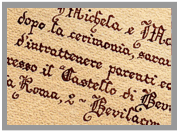 Michela e M
dopo la cerimonia, sara
d'intrattenere parenti e
resso il Castello di Bev
a Roma, 2 - Bevilacq